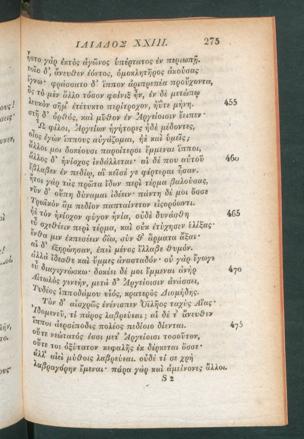 ΙΛΙΑΔΟΣ XXIII. 275
ἧστο γὰρ ἐκτὸς ἀγῶνος ὑπέρτατος ἐν περιωπῇ.
τοῖο δ', ἄνευθεν ἐόντος, ὁμοκλητῆρος ἀκούσας
ἔγνω· φράσσατο δ' ἵππον ἀριπρεπέα προὔχοντα,
ὃς τὸ μὲν ἄλλο τόσον φοίνιξ ἦν, ἐν δὲ μετώπῳ
λευκὸν σῆμ' ἐτέτυκτο περίτροχον, ἠΰτε μήνη. 455
στῆ δ' ὀρθὸς, καὶ μῦθον ἐν Ἀργείοισιν ἔειπεν·
Ὦ φίλοι, Ἀργείων ἡγήτορες ἠδὲ μέδοντες,
οἶος ἐγὼν ἵππους αὐγάζομαι, ἠὲ καὶ ὑμεῖς;
ἄλλοι μοι δοκέουσι παροίτεροι ἔμμεναι ἵπποι,
ἄλλος δ' ἡνίοχος ἰνδάλλεται· αἱ δέ που αὐτοῦ 460
ἔβλαβεν ἐν πεδίῳ, αἳ κεῖσέ γε φέρτεραι ἦσαν.
ἤτοι γὰρ τὰς πρῶτα ἴδον περὶ τέρμα βαλούσας,
νῦν δ' οὔπη δύναμαι ἰδέειν· πάντη δέ μοι ὄσσε
Τρωϊκὸν ἂμ πεδίον παπταίνετον εἰσορόωντι.
ἠὲ τὸν ἡνίοχον φύγον ἡνία, οὐδὲ δυνάσθη 465
εὖ σχεθέειν περὶ τέρμα, καὶ οὐκ ἐτύχησεν ἑλίξας·
ἔνθα μιν ἐκπεσέειν ὀΐω, σύν θ' ἅρματα ἆξαι·
αἱ δ' ἐξηρώησαν, ἐπεὶ μένος ἔλλαβε θυμόν.
ἀλλὰ ἴδεσθε καὶ ὔμμες ἀνασταδόν· οὐ γὰρ ἔγωγε
εὖ διαγινώσκω· δοκέει δέ μοι ἔμμεναι ἀνὴρ 470
Αἰτωλὸς γενεὴν, μετὰ δ' Ἀργείοισιν ἀνάσσει,
Τυδέος ἱπποδάμου υἱὸς, κρατερὸς Διομήδης.
Τὸν δ' αἰσχρῶς ἐνένισπεν Ὀϊλῆος ταχὺς Αἴας·
Ἰδομενεῦ, τί πάρος λαβρεύεαι; αἱ δέ τ' ἄνευθεν
ἵπποι ἀερσίποδες πολέος πεδίοιο δίενται. 475
οὔτε νεώτατός ἐσσι μετ' Ἀργείοισι τοσοῦτον,
οὔτε τοι ὀξύτατον κεφαλῆς ἐκ δέρκεται ὄσσε·
ἀλλ' αἰεὶ μύθοις λαβρεύεαι. οὐδέ τί σε χρὴ
λαβραγόρην ἔμεναι· πάρα γὰρ καὶ ἀμείνονες ἄλλοι.
S 2